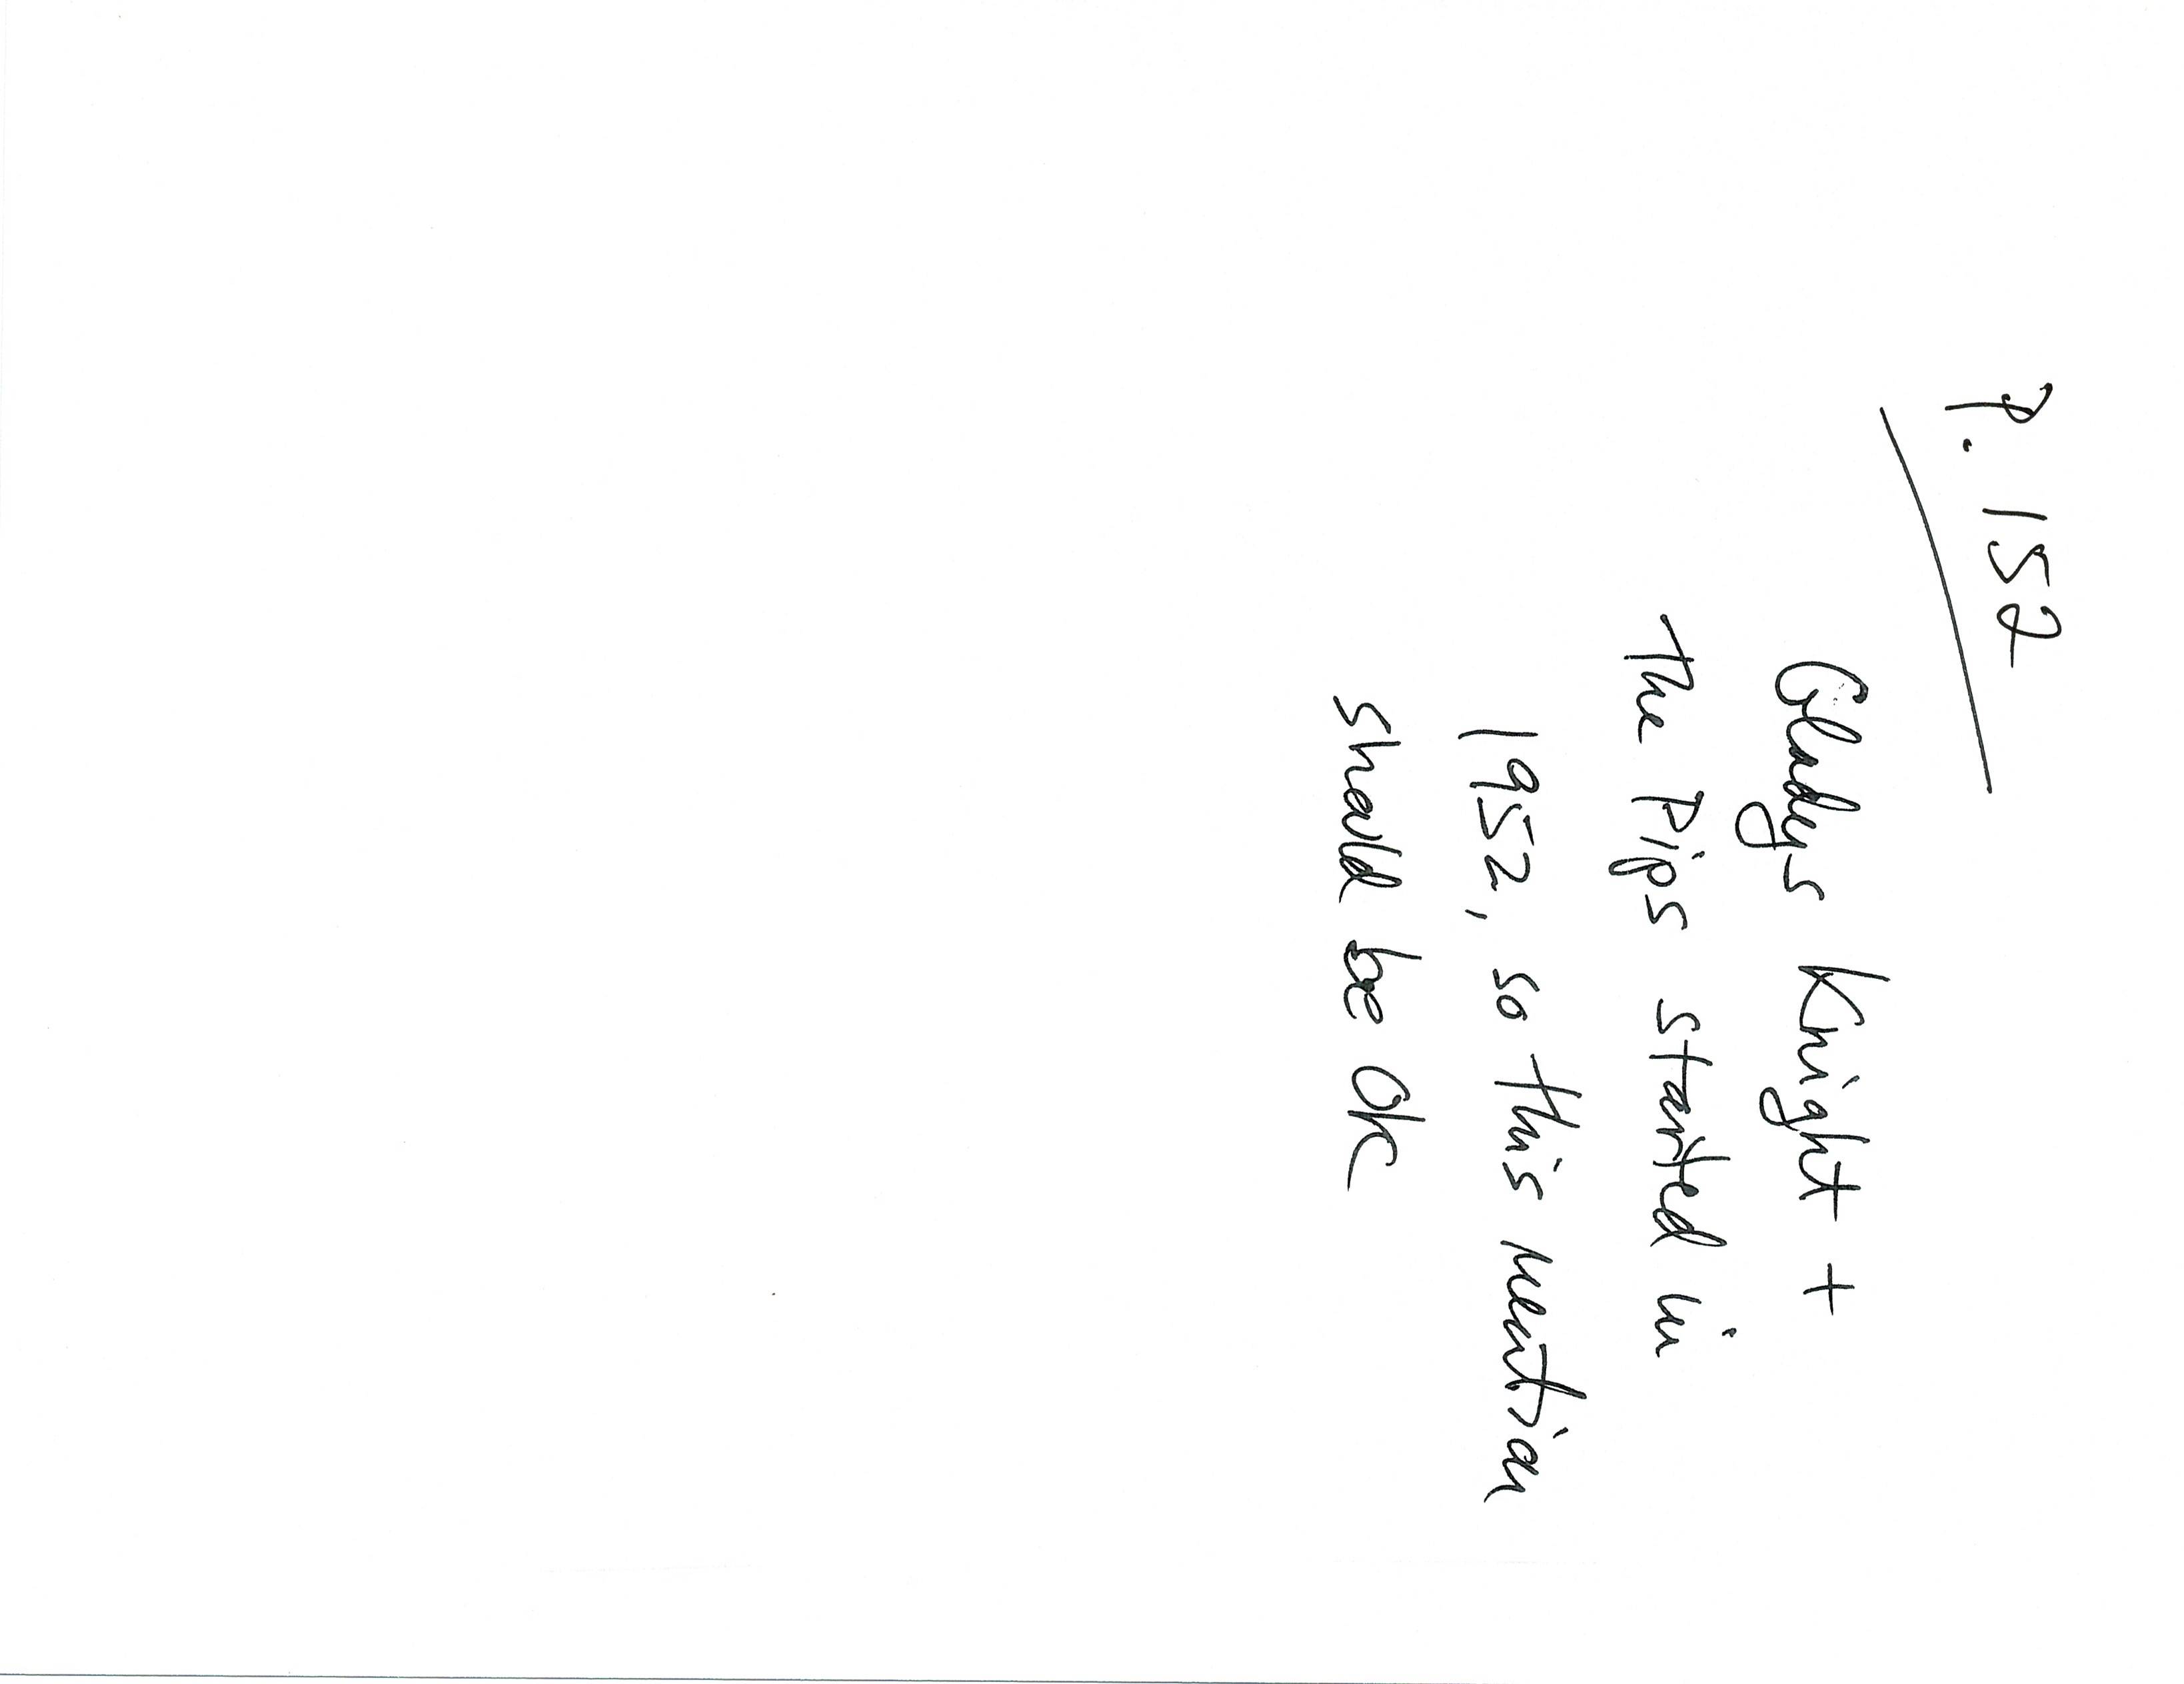 P. 152
Gladys Knight +
The Pips started in
1952, so this mention
should be OK